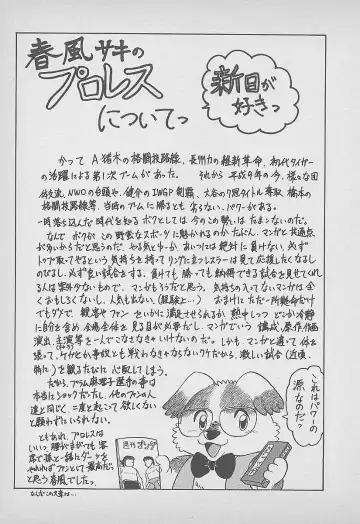 春風サキの
プロレス
についてっ
新日が
好きっ
かつて A猪木の格闘技路線、長州力の維新革命、初代タイガー
の活躍による第1次ブームがあった。 それから 平成9年の今、様々な団
体交流、NWOの台頭や、健介のIWGP制覇、大谷のJr.タイトル奪取 橋本の
格闘技路線等、当時のブームに勝るとも 劣らない、パワーがある。
一時落ち込んだ時代を知る ボクとしては 今のこの勢いは たまんないのだ。
なんで ボクがこの野蛮なスポーツに魅かれるのか たぶん、マンガと共通点
が多いからだと思うのだ。やる気とゆーか、あいつには絶対に 負けない、必ず
トップ取ってやるという 気持ちを 持って リングに立つレスラーは見て 応援したくなるし
のびるし、必ず良い試合をする。負けても 勝っても 納得できる試合を見せてくれる
人は案外少ないもので、マンガもそうだと思う。気持ちの入ってないマンガは全
くおもしろくないし、人気も出ない。(経験上…) おまけに ただ一所懸命だけ
でもダメで 観客やファンをいかに満足させられるか 熱中しつつ どこか冷静
に自分を含め 会場全体を見る目が必要だし、マンガでいう 構成、原作、作画
演出、主演等を 一人でこなさなきゃいけないのだ。 しかも マンガと違って 体を
張って、ケガとか事故とも 戦わなきゃならないワケだから、激しい試合(近頃、
特に)を観るたびに心配してしまう。
だから、プラム麻里子選手の事は
本当にショックだったし、他のファンの人
達と同じく、二度と起こって 欲しくない
と願わずにいられない。
ともあれ、プロレスは
と思う春風でしたっ。
これはパワーの
源なのだっ